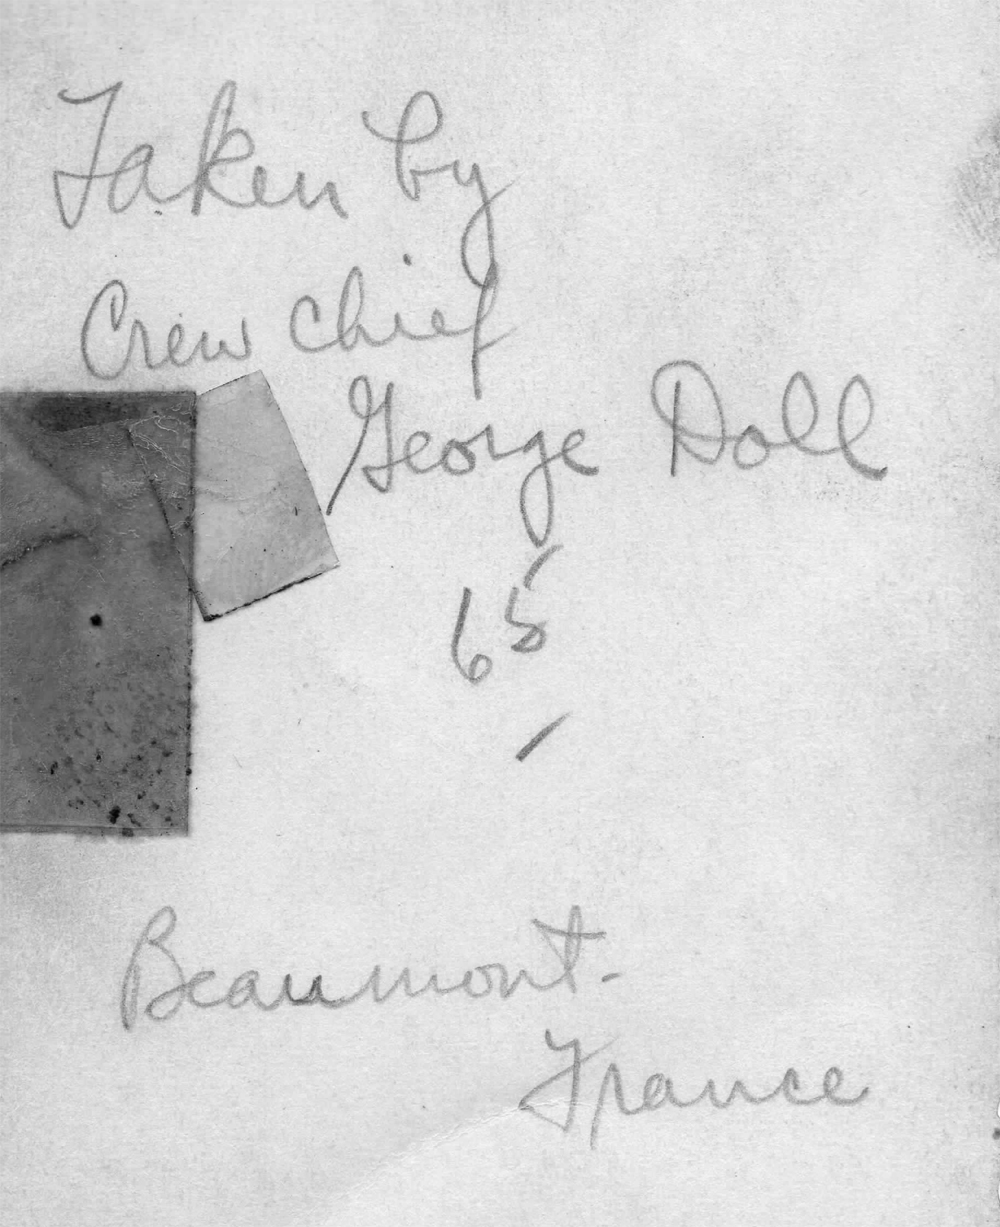 Taken by
Crew chief
George Doll
65
Beaumont-
France